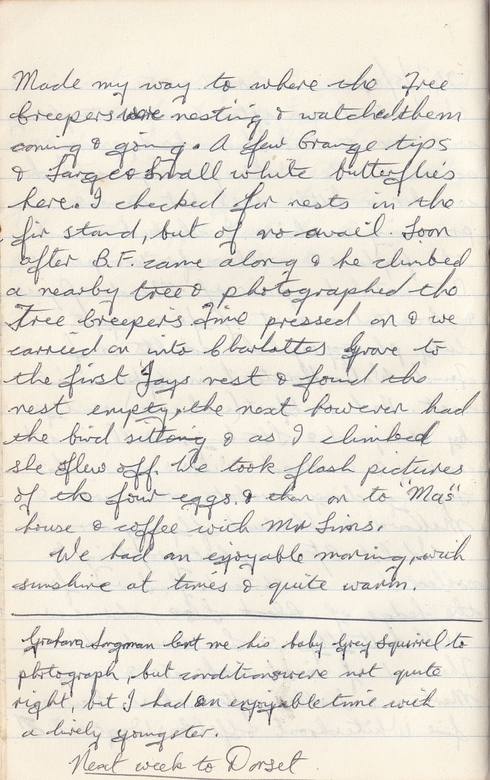 Made my way to where the Tree
Creepers were nesting & watched them
coming & going. A few Orange tips
& Large & Small white butterflies
here. I checked for nests in the
fir stand, but of no avail. Soon
after B.F. came along & he climbed
a nearby tree & photographed the
Tree Creepers. Time pressed on & we
carried on into Charlottes Grove to
the first Jays nest & found the
nest empty, the next however had
the bird sitting & as I climbed
she flew off. We took flash pictures
of the four eggs. & then on to "Ma's"
house & coffee with Mr Sims.
We had an enjoyable morning, with
sunshine at times & quite warm.
Graham lent me his baby Grey Squirrel to
photograph, but conditions were not quite
right, but I had an enjoyable time with
a lively youngster.
Next week to Dorset.